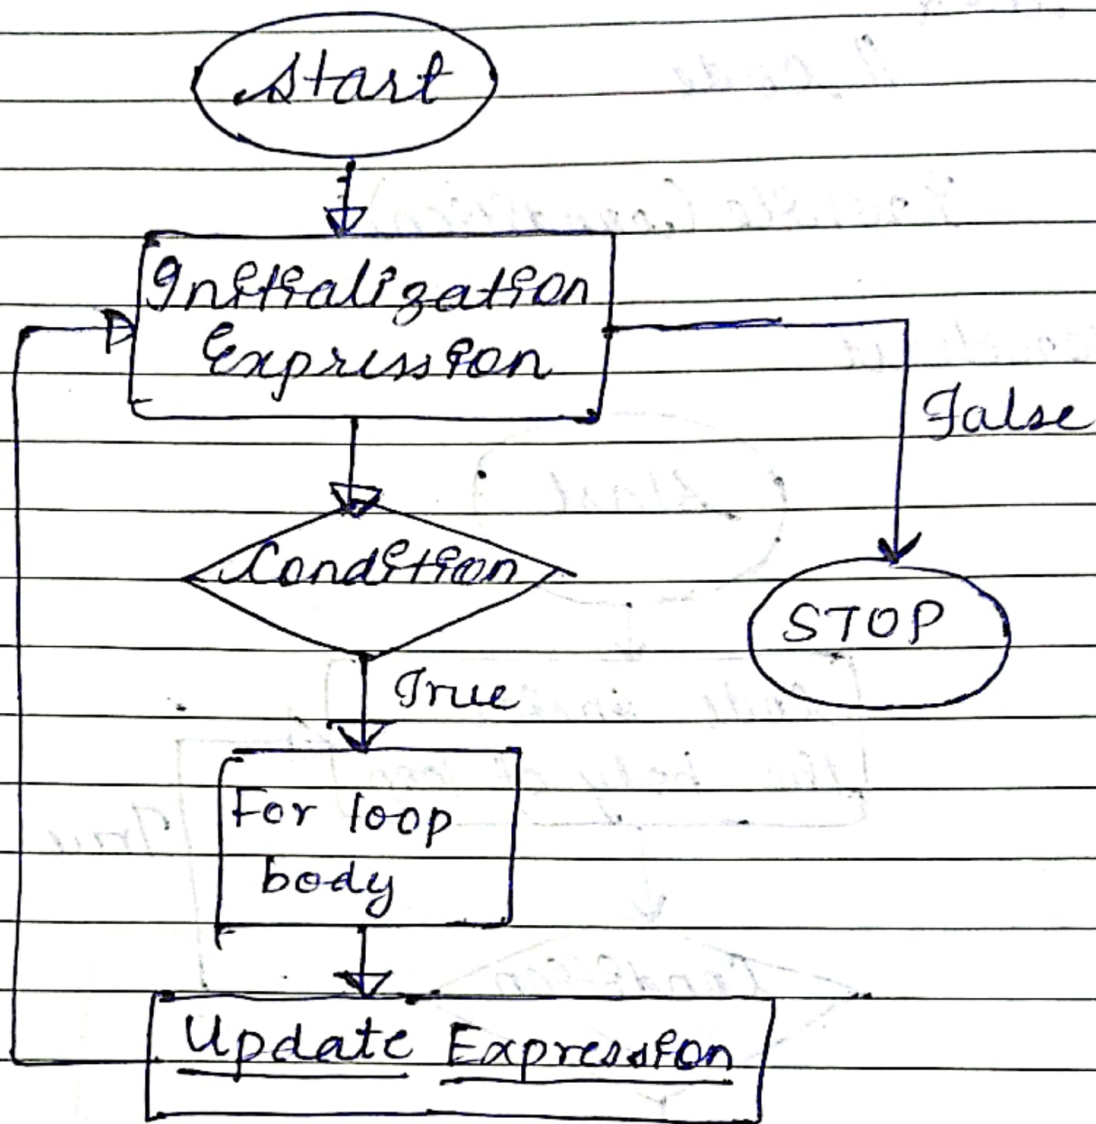 Start
Initialization
Expression
False
Condition
STOP
True
For loop
body
Update Expression